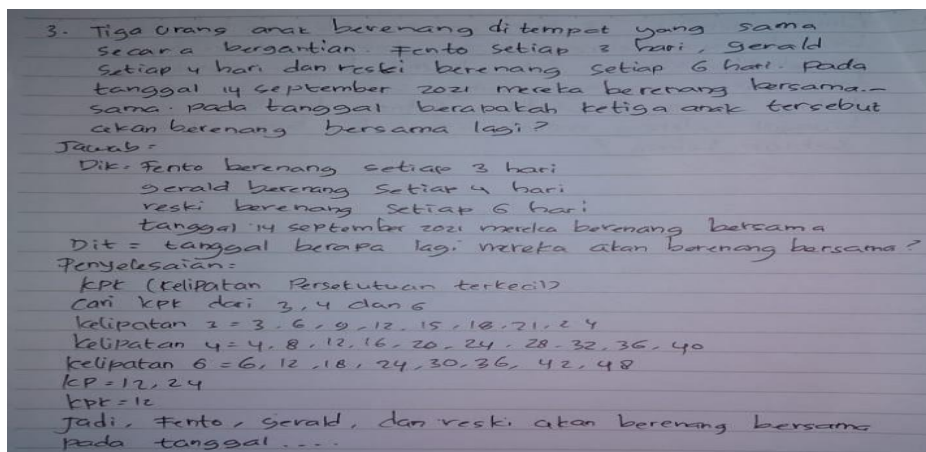 3. Tiga orang anak berenang di tempat yang sama
secara bergantian. Fento setiap 3 hari, gerald
setiap 4 hari dan reski berenang setiap 6 hari. Pada
tanggal 14 september 2021 mereka berenang bersama-
sama. pada tanggal berapakah ketiga anak tersebut
akan berenang bersama lagi?
Jawab =
Dik = Fento berenang setiap 3 hari
gerald berenang setiap 4 hari
reski berenang setiap 6 hari
tanggal 14 september 2021 mereka berenang bersama
Dit = tanggal berapa lagi mereka akan berenang bersama?
Penyelesaian =
KPK (Kelipatan Persekutuan terkecil)
Cari KPK dari 3, 4 dan 6
Kelipatan 3 = 3, 6, 9, 12, 15, 18, 21, 24
Kelipatan 4 = 4, 8, 12, 16, 20, 24, 28, 32, 36, 40
Kelipatan 6 = 6, 12, 18, 24, 30, 36, 42, 48
KP = 12, 24
KPK = 12
Jadi, Fento, gerald, dan reski akan berenang bersama
pada tanggal ....